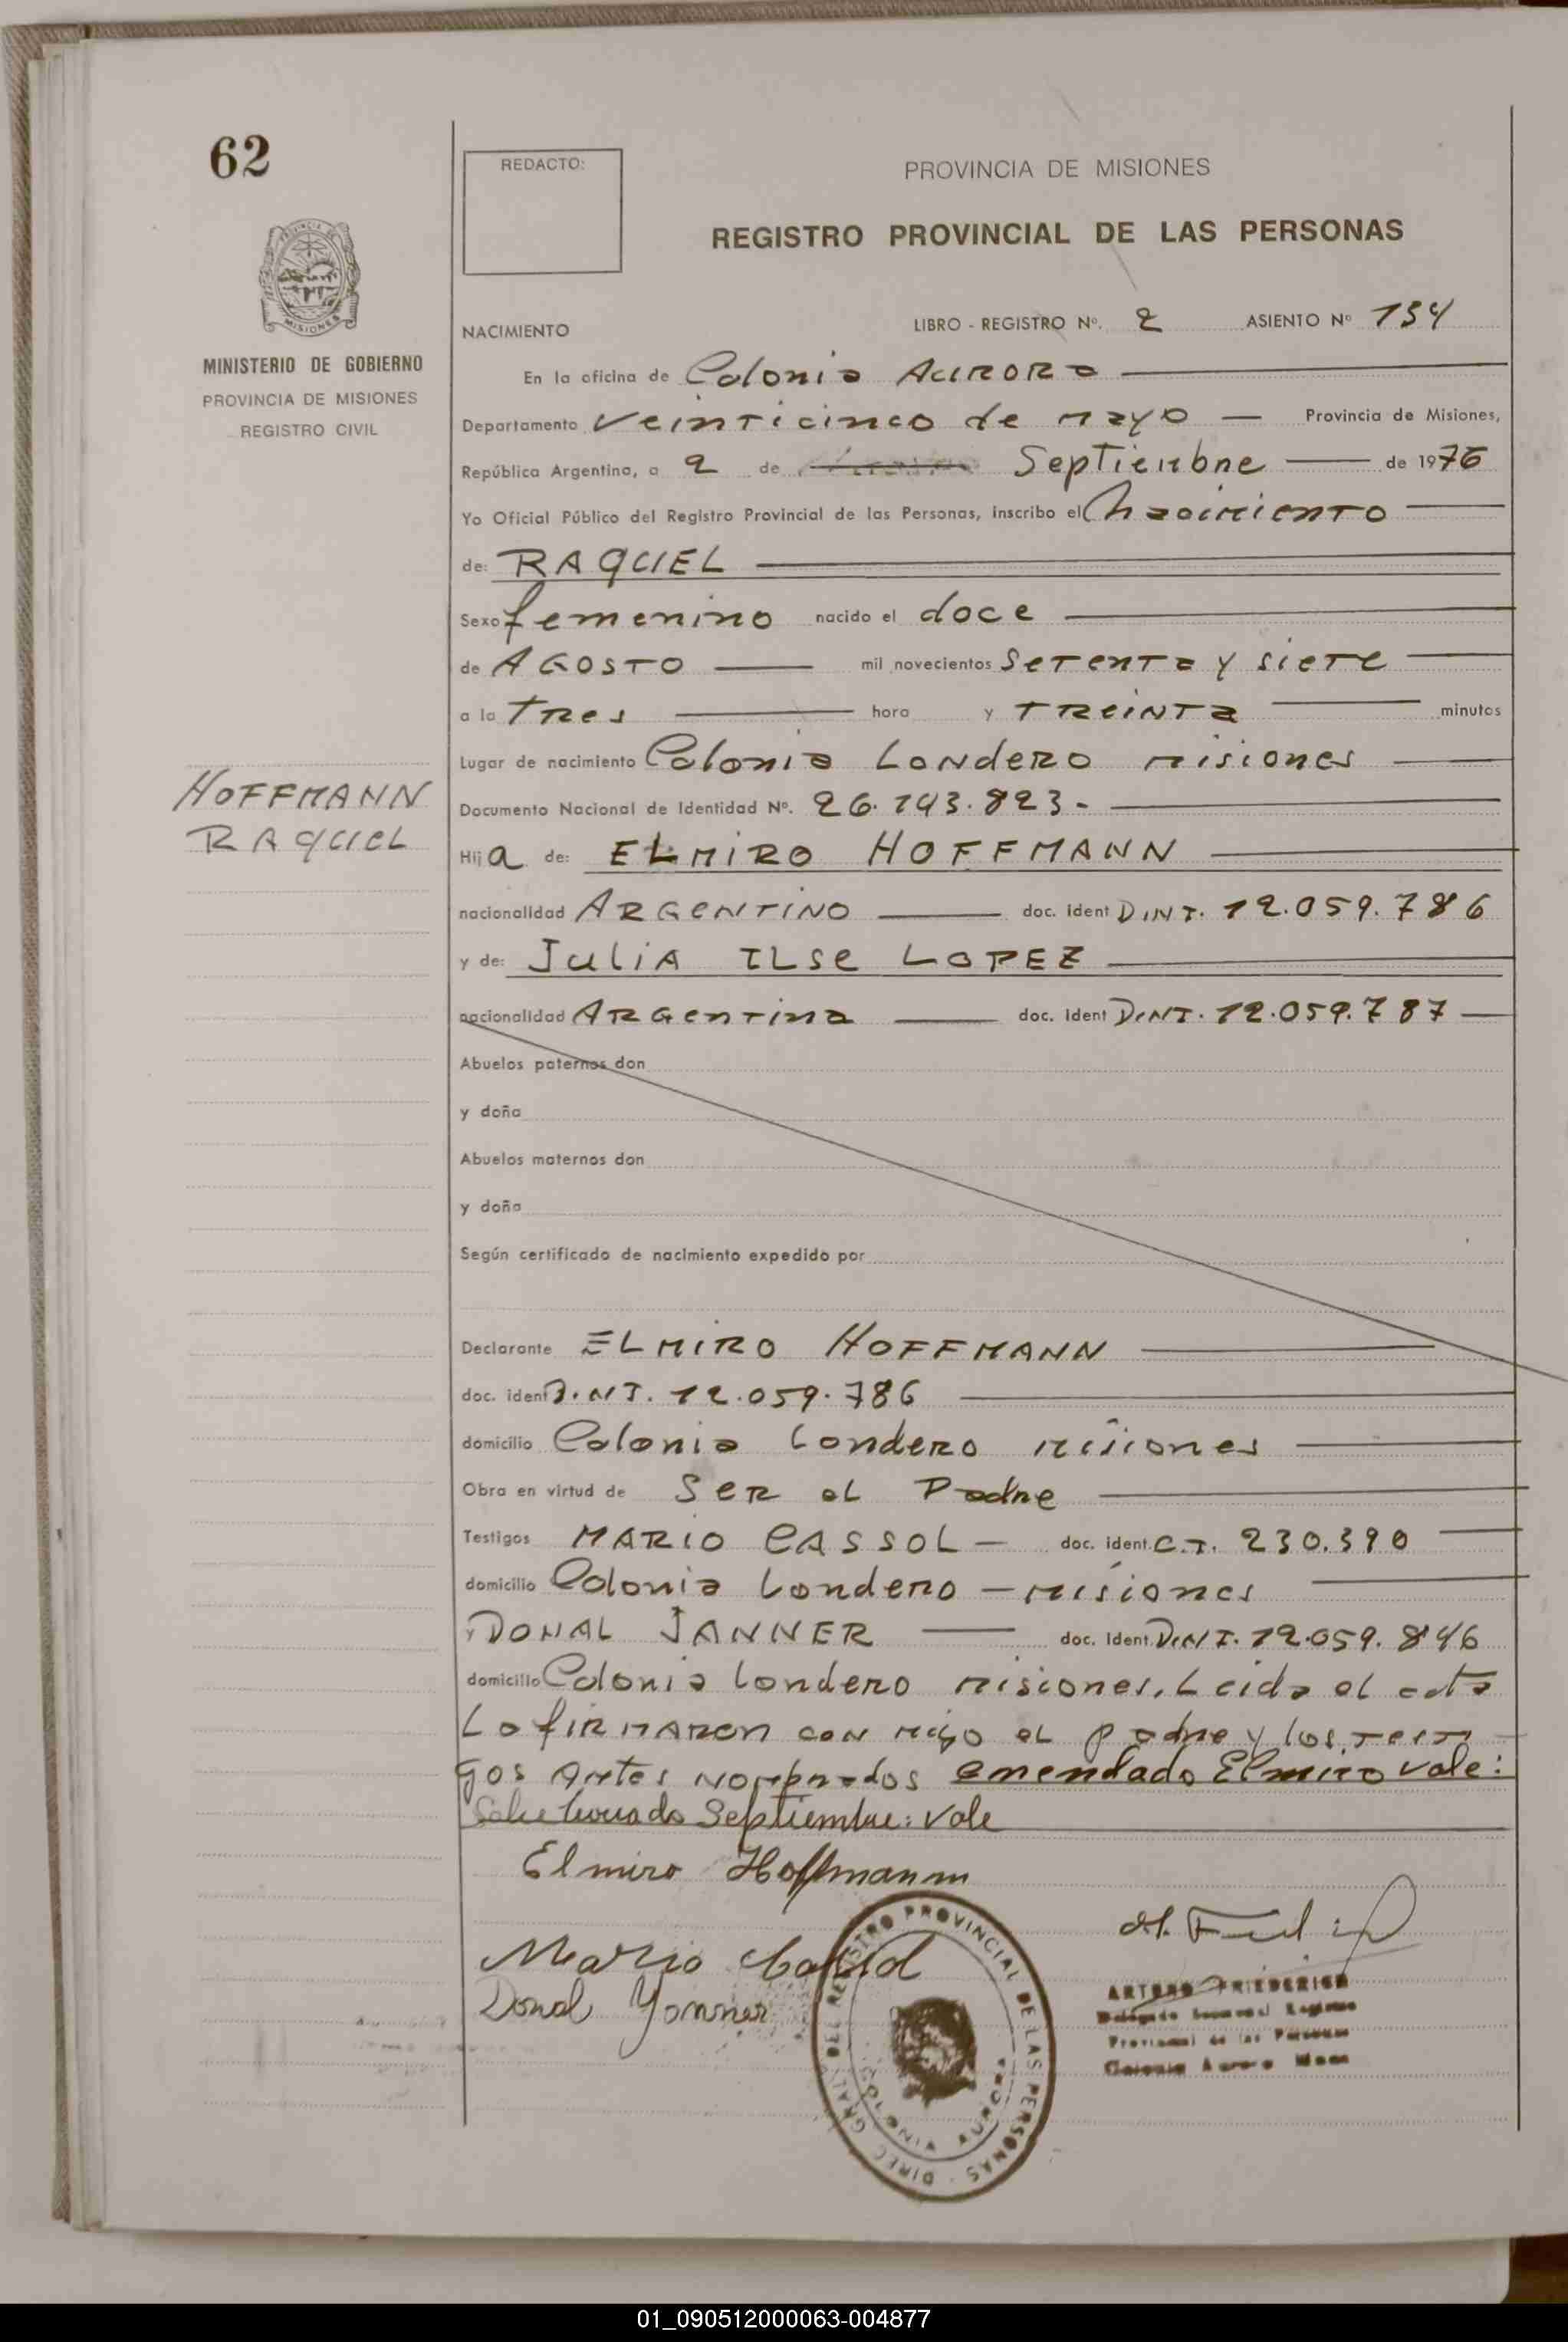 62
REDACTO:
PROVINCIA DE MISIONES
REGISTRO PROVINCIAL DE LAS PERSONAS
MISIONES
MINISTERIO DE GOBIERNO
PROVINCIA DE MISIONES
REGISTRO CIVIL
NACIMIENTO LIBRO - REGISTRO Nº. 2 ASIENTO Nº 134
En la oficina de Colonia AURORA
Departamento Veinticinco de mayo Provincia de Misiones,
República Argentina, a 2 de Septiembre de 1976
Yo Oficial Público del Registro Provincial de las Personas, inscribo el Nacimiento
de: RAQUEL
Sexo femenino nacido el doce
de AGOSTO mil novecientos Setenta y siete
a la Tres hora y TReiNTa minutos
Lugar de nacimiento Colonia LoNdeRo misiones
Documento Nacional de Identidad Nº. 26.143.823.-
HOFFMANN
RAQUEL
Hij a de: ELMIRO HOFFMANN
nacionalidad ARGENTINO doc. ident D.N.I. 12.059.786
y de: JuLiA ILSe LOPEZ
nacionalidad ARGentina doc. ident D.N.I. 12.059.787
Abuelos paternos don
y doña
Abuelos maternos don
y doña
Según certificado de nacimiento expedido por
Declarante ELMIRO HOFFMANN
doc. ident D.N.I. 12.059.786
domicilio Colonia Londero misiones
Obra en virtud de SeR el Padre
Testigos MARIO CASSOL doc. ident. C.I. 230.390
domicilio Colonia Londero - misiones
y DONAL JANNER doc. Ident. D.N.I. 12.059.846
domicilio Colonia Londero misiones. Leida el acta
La fiRMARon con migo el padre y los testi
gos Antes Nombrados emendado Elmiro vale:
Sobre borrado Septiembre: Vale
Elmiro Hoffmann
Mario Cassol
Donal Yanner
DIREC. GRAL. DEL REGISTRO PROVINCIAL DE LAS PERSONAS
COLONIA AURORA
ARTURO FRIEDERICH
Delegado Registro
Provincial de las Personas
Colonia Aurora Mnes
01_090512000063-004877